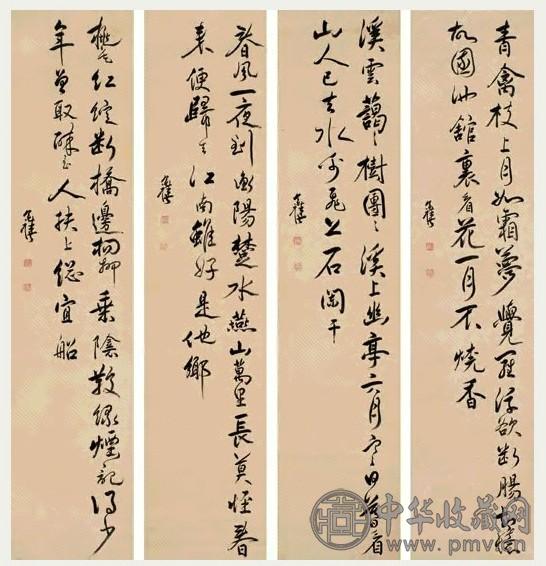 青禽枝上月如霜夢覺羅浮欲斷腸憶
故園池館裏看花一月不燒香
溪雲藹〻樹團〻溪上幽亭六月寒日暮看
山人已去水禽飛上石闌干
春風一夜到衡陽楚水燕山萬里長莫怪春
來便歸去江南雖好是他鄉
桃花紅綻斷橋邊楊柳垂陰散綠煙記得少
年曾取醉玉人扶上總宜船
中华收藏网
www.pmv.c